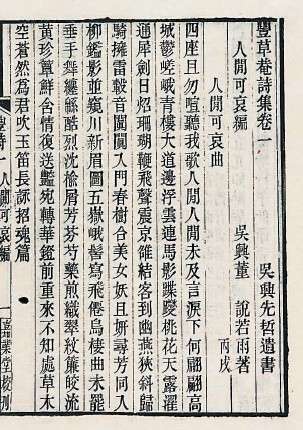 豐草菴詩集卷一　吳興先哲遺書
人閒可哀編　吳興董　說若雨著
人閒可哀曲　丙戌
四座且勿喧聽我歌人閒人閒未及言淚下何翩翩高
城鬱嵯峨青樓大道邊浮雲連馬影蹀躞桃花天露濯
通犀劍日炤珊瑚鞭飛聲震京雒結客到幽燕狹斜歸
騎擁雷轂音闐闐入門春樹合美女妖且妍尋芳同入
柳鑑影並窺川新眉圖五嶽髻寫飛僊烏棲曲未罷
垂手舞纏綿酷烈沈楡屑芳芬芍藥煎織翠紋簾皎流
黃珍簟鮮含情復送豔宛轉華鐙前重來不知處草木
空蒼然爲君吹玉笛長詠招魂篇
豐詩一　人閒可哀編　嘉業堂校刊